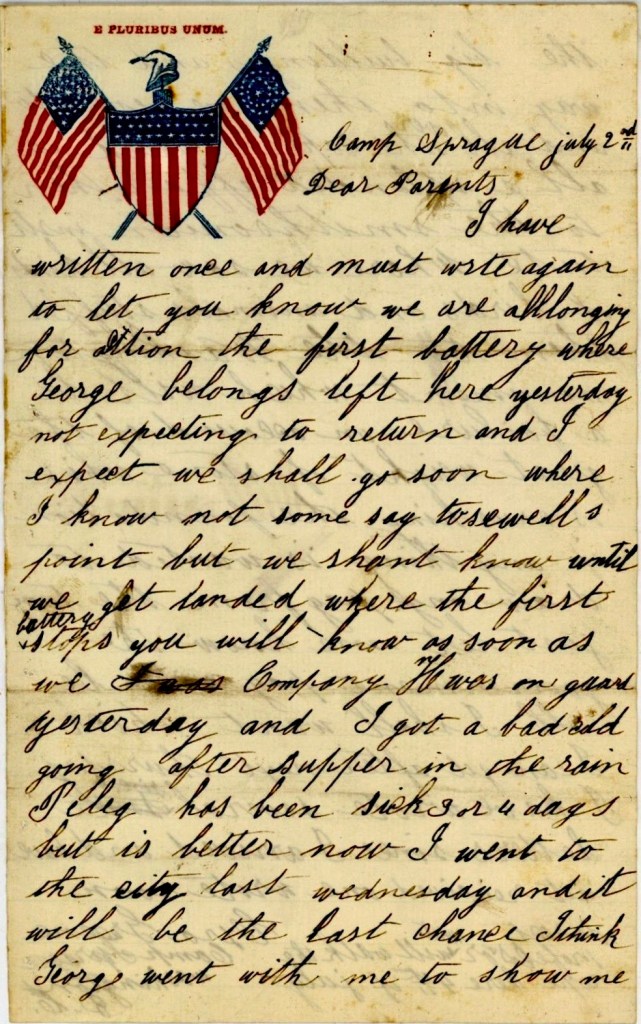 E PLURIBUS UNUM.
Camp Sprague july 2nd
Dear Parents
I have
written once and must wrte again
to let you know we are alllonging
for the first battery where
George belongs left here yesterday
not expecting to return and I
expect we shall go soon where
I know not some say tosewells
point but we shant know until
we get landed where the first
battery
stops you will know as soon as
we Company H was on guard
yesterday and I got a bad cold
going after supper in the rain
Peleg has been sick 3 or 4 days
but is better now I went to
the city last wednesday and it
will be the last chance I think
Georg went with me to show me